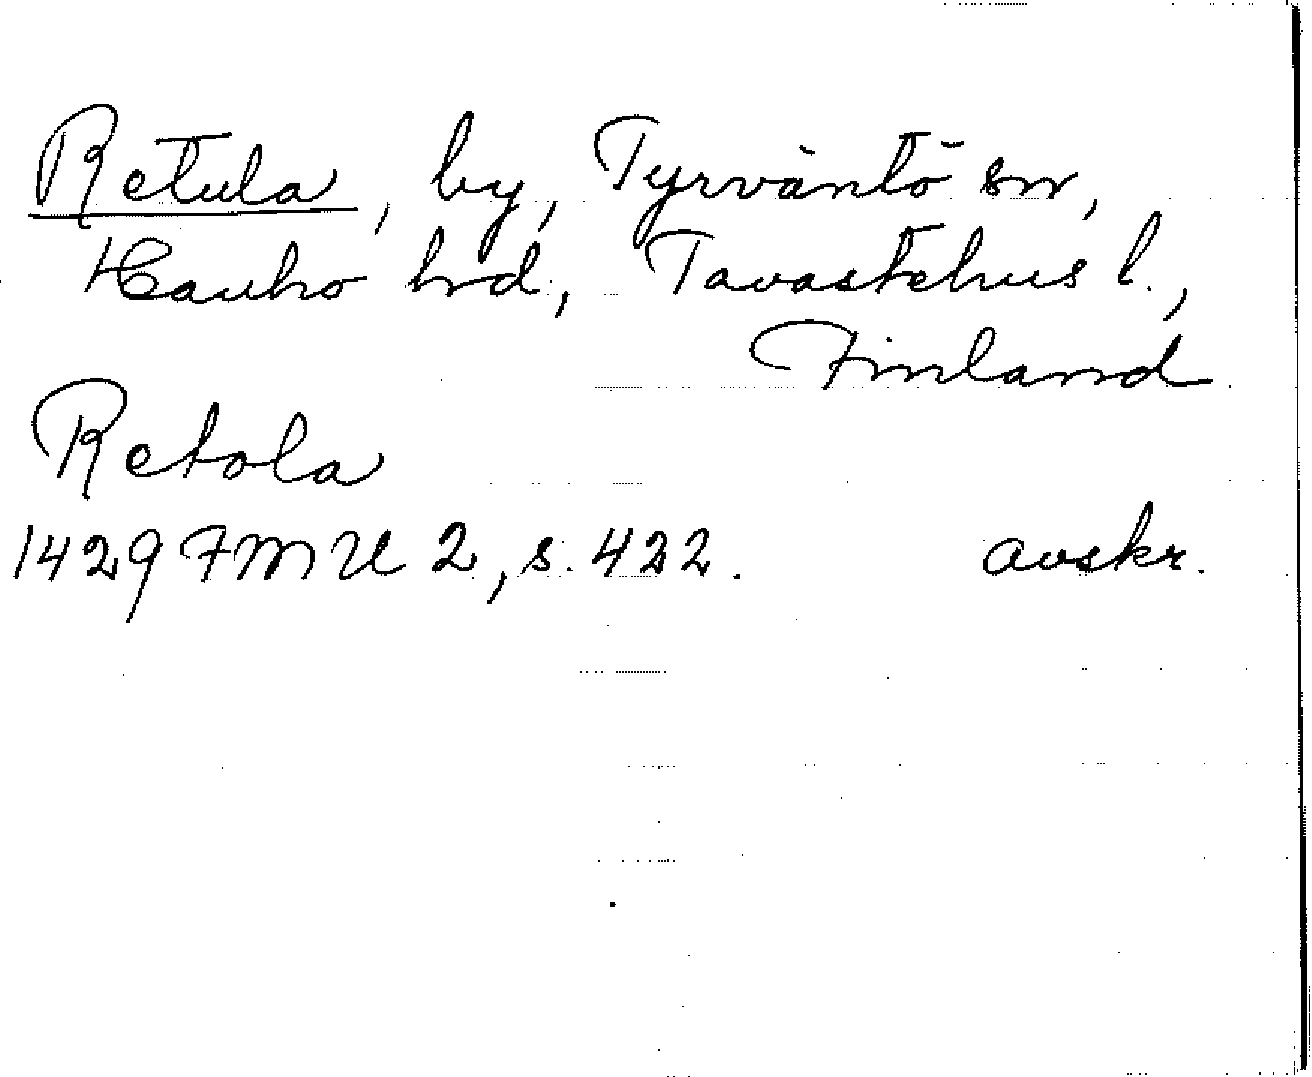 Retula, by, Tyrväntö sn,
Hauho hd, Tavastehus l.,
Finland
Retola
1429 FMU 2, s. 422. avskr.